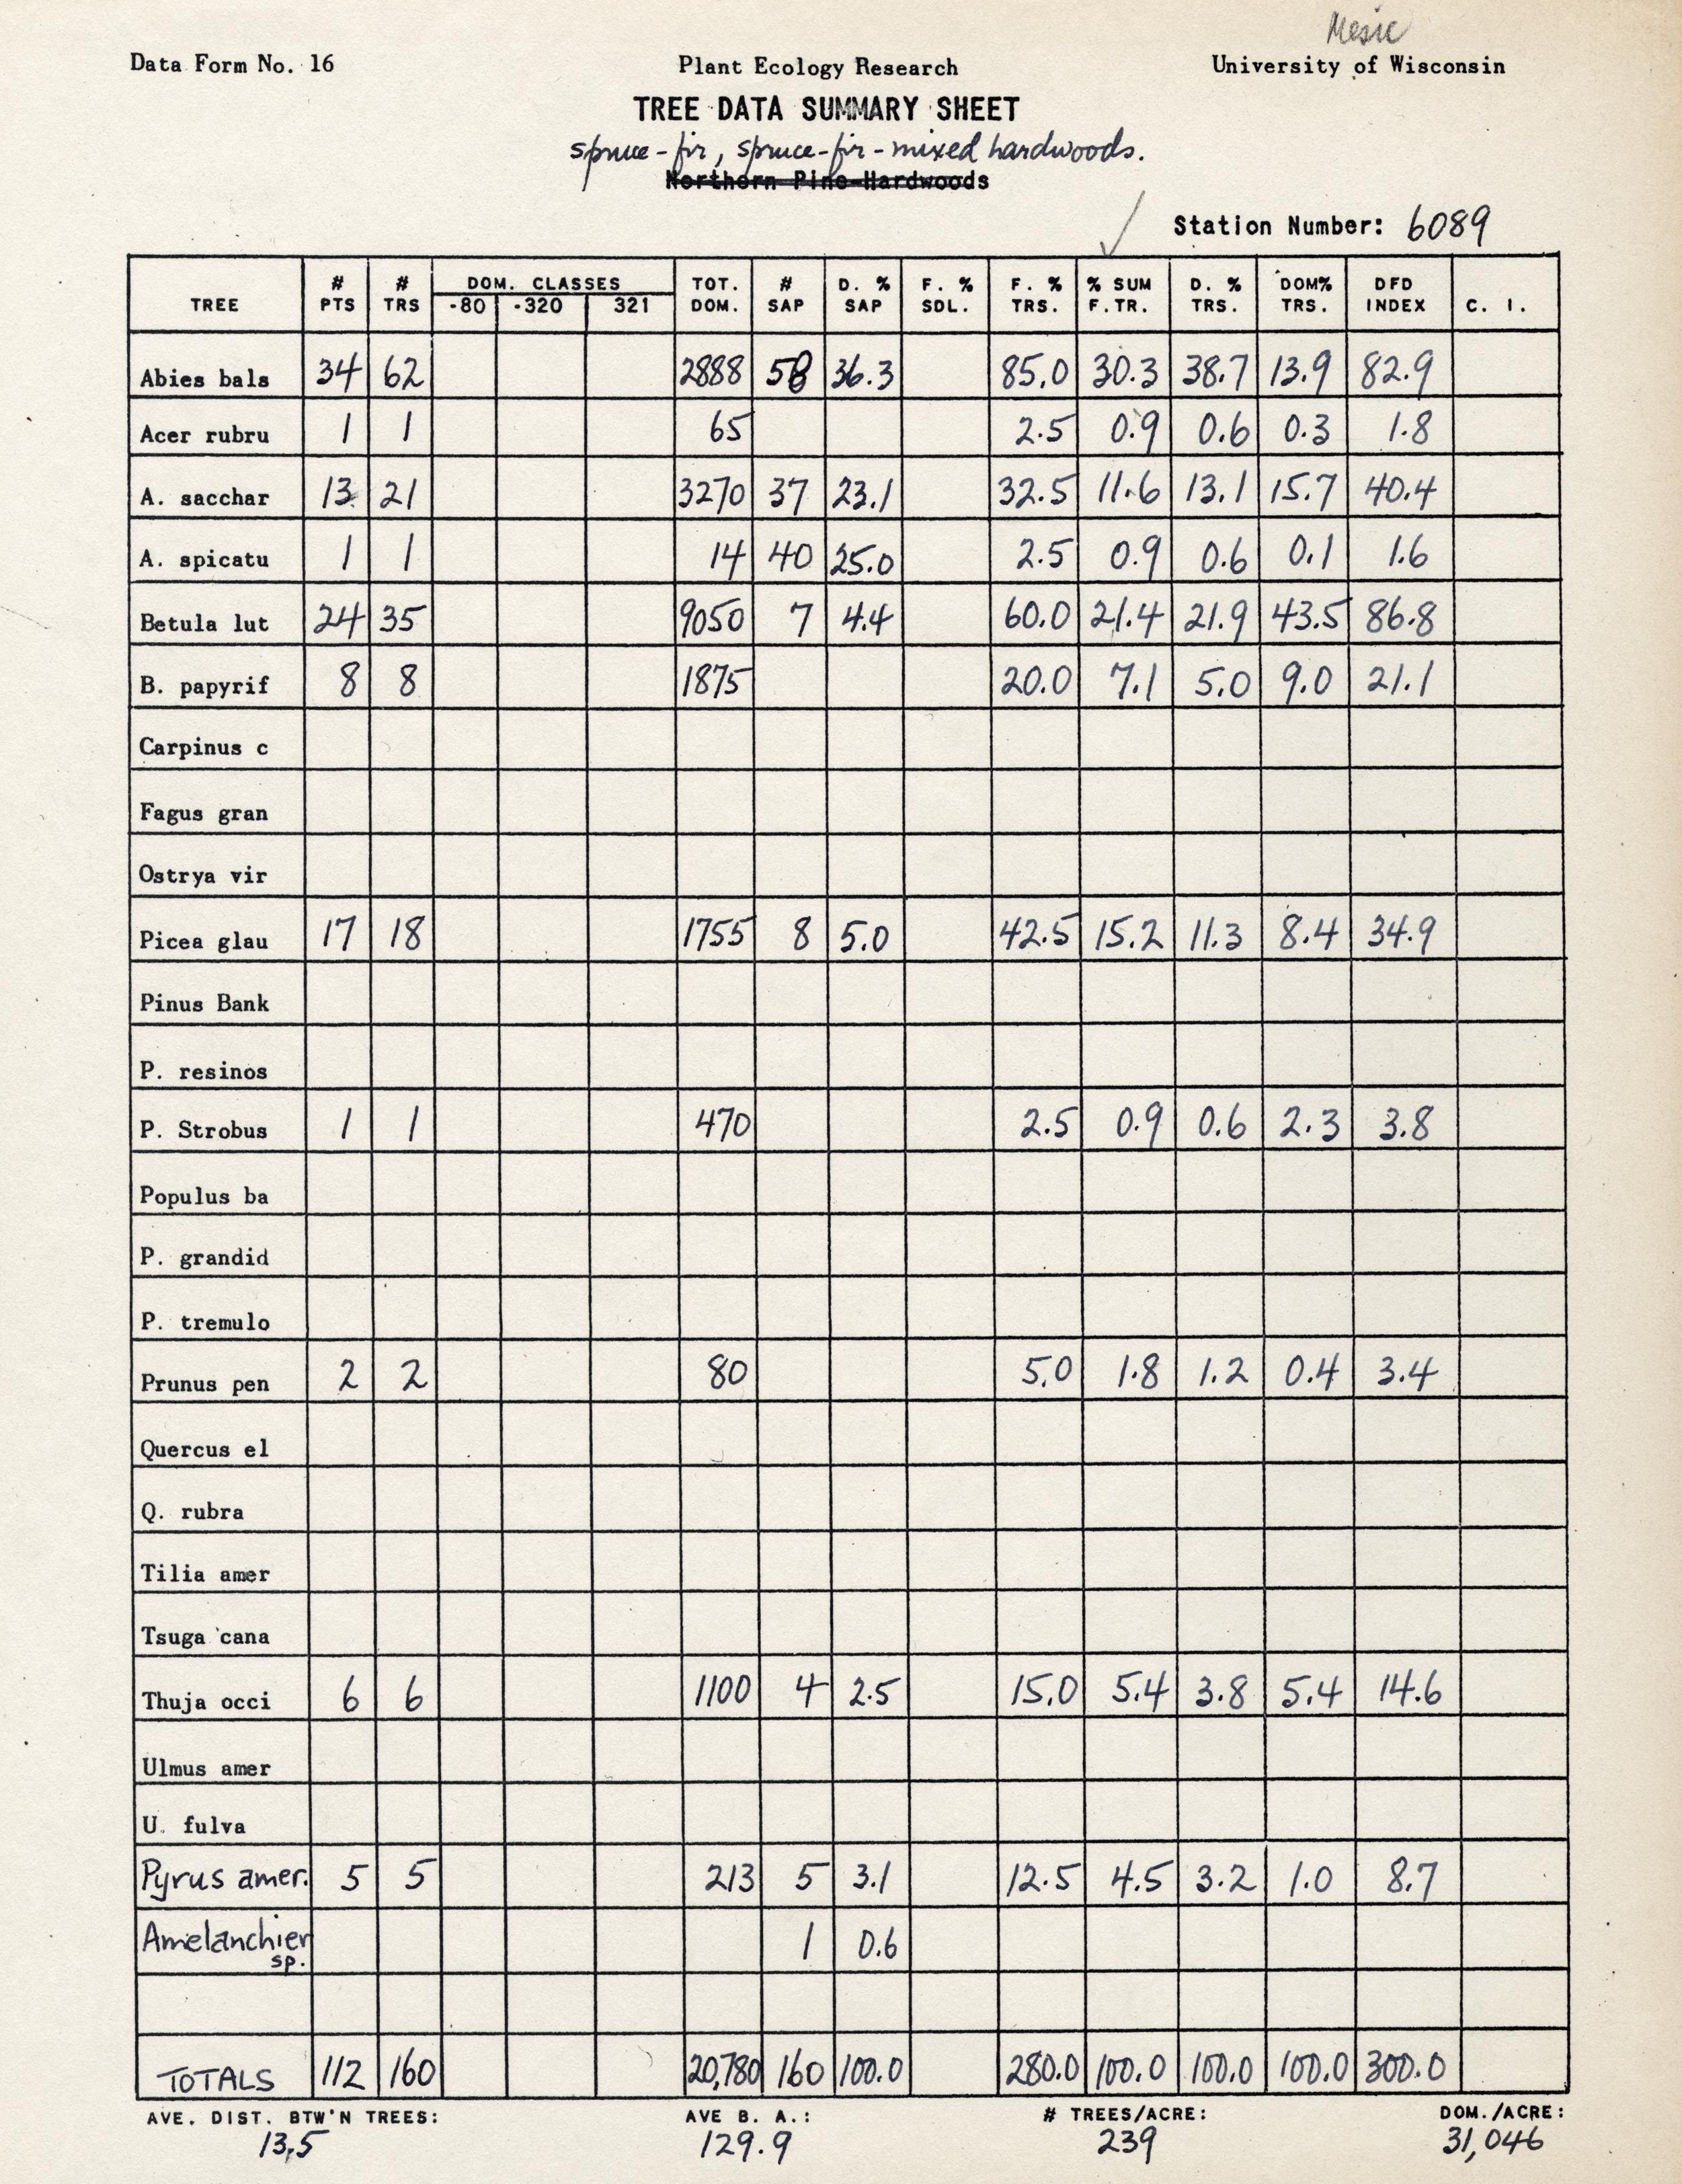 Mesic
Data Form No. 16 Plant Ecology Research University of Wisconsin
TREE DATA SUMMARY SHEET
spruce-fir, spruce-fir-mixed hardwoods.
Northern Pine-Hardwoods
Station Number: 6089
TREE # PTS # TRS DOM. CLASSES -80 -320 321 TOT. DOM. # SAP D. % SAP F. % SDL. F. % TRS. % SUM F. TR. D. % TRS. DOM% TRS. DFD INDEX C. I.
Abies bals 34 62 2888 58 36.3 85.0 30.3 38.7 13.9 82.9
Acer rubru 1 1 65 2.5 0.9 0.6 0.3 1.8
A. sacchar 13 21 3270 37 23.1 32.5 11.6 13.1 15.7 40.4
A. spicatu 1 1 14 40 25.0 2.5 0.9 0.6 0.1 1.6
Betula lut 24 35 9050 7 4.4 60.0 21.4 21.9 43.5 86.8
B. papyrif 8 8 1875 20.0 7.1 5.0 9.0 21.1
Carpinus c
Fagus gran
Ostrya vir
Picea glau 17 18 1755 8 5.0 42.5 15.2 11.3 8.4 34.9
Pinus Bank
P. resinos
P. Strobus 1 1 470 2.5 0.9 0.6 2.3 3.8
Populus ba
P. grandid
P. tremulo
Prunus pen 2 2 80 5.0 1.8 1.2 0.4 3.4
Quercus el
Q. rubra
Tilia amer
Tsuga cana
Thuja occi 6 6 1100 4 2.5 15.0 5.4 3.8 5.4 14.6
Ulmus amer
U. fulva
Pyrus amer. 5 5 213 5 3.1 12.5 4.5 3.2 1.0 8.7
Amelanchier sp. 1 0.6
TOTALS 112 160 20,780 160 100.0 280.0 100.0 100.0 100.0 300.0
AVE. DIST. BTW'N TREES: AVE B. A.: # TREES/ACRE: DOM./ACRE:
13.5 129.9 239 31,046